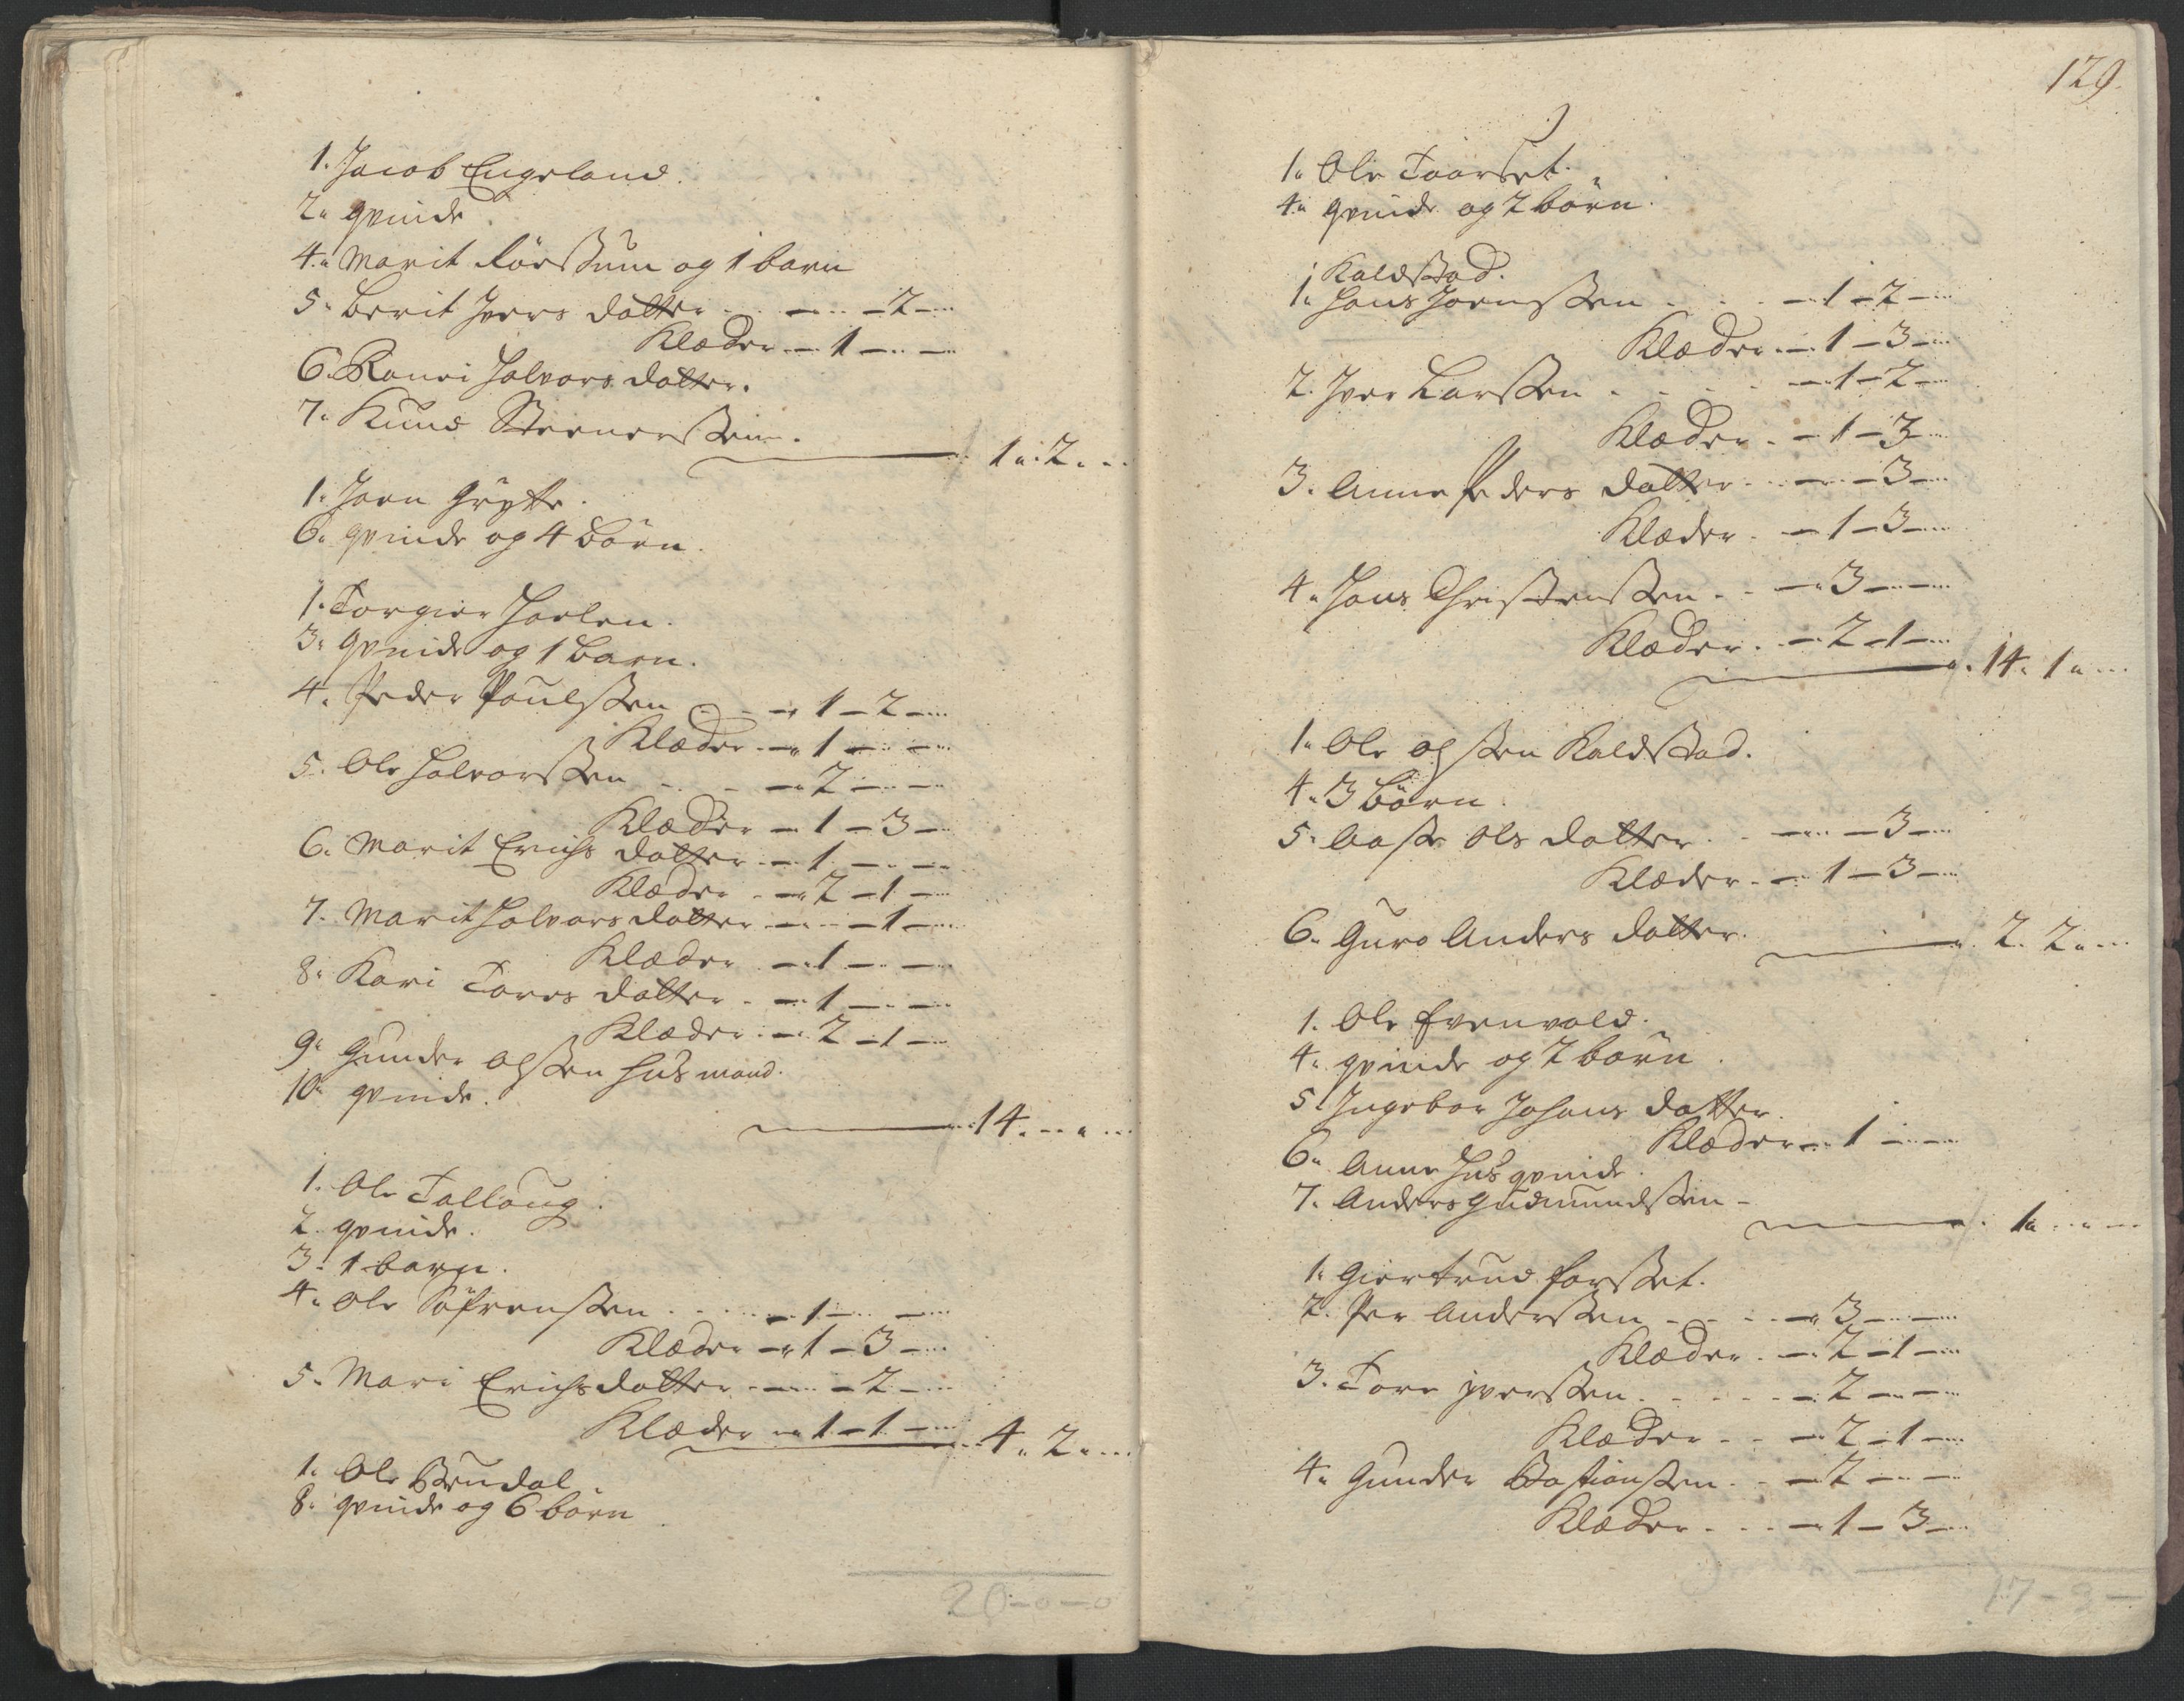 1. Jacob Engeland.
2. qvinde
4. Marit Rörstum og 1 barn
5. Berit Ivers datter - - - 2 -
Klæder - 1 - -
6. Ranei Halvors datter.
7. Knud Steenerssen.
1. 2. -
1. Joen Grytte.
6. qvinde og 4 börn.
1. Torgier Hoelen.
3. qvinde og 1 barn.
4. Peder Poulssen - 1 - 2 -
Klæder - 1 - -
5. Ole Halvorssen - 2 - -
Klæder - 1 - 3 -
6. Marit Erichs datter - 1 - -
Klæder - 2 - 1 -
7. Marit Halvors datter - - 1 -
Klæder - 1 - -
8. Kari Tores datter - 1 - -
Klæder - 2 - 1 -
9. Gunder Olssen Husmand.
10. qvinde.
14. - -
1. Ole Talloug.
2. qvinde.
3. 1 barn.
4. Ole Söfrenssen - 1 - -
Klæder - 1 - 3 -
5. Mari Erichsdatter - - 2 -
Klæder - 1 - 1 -
4. 2. -
1. Ole Brudal
8. qvinde og 6 börn
20 - 0 - 0
129.
1. Ole Toorset.
4. qvinde og 2 börn.
Kaldstad.
1. Hans Joenssen - 1 - 2 -
Klæder - 1 - 3 -
2. Iver Larssen - 1 - 2 -
Klæder - 1 - 3
3. Anne Peders datter - - 3 -
Klæder - 1 - 3 -
4. Hans Christenssen - 3 - -
Klæder - 2 - 1 -
14. 1. -
1. Ole Olssen Kaldstad.
4. 3 börn.
5. Aase Ols datter - - 3 -
Klæder - 1 - 3 -
6. Guro Anders datter.
2. 2. -
1. Ole Evenvold.
4. qvinde og 2 börn.
5. Ingebor Johans datter.
Klæder - 1 - -
6. Anne Husqvinde.
7. Anders Gudmundssen -
1. - -
1. Giertrud Forset.
2. Per Anderssen - 3 - -
Klæder - 2 - 1 -
3. Tore Iverssen - 2 - -
Klæder - 2 - 1 -
4. Gunder Bastianssen - 2 - -
Klæder - 1 - 3 -
17 - 3 -